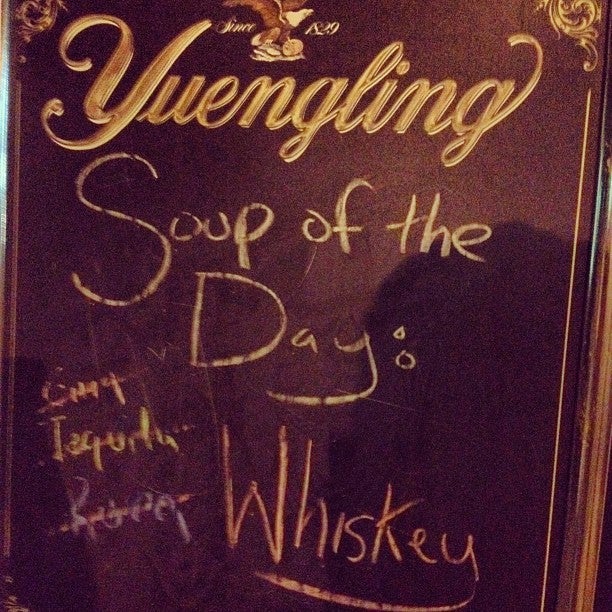 Since 1829
Yuengling
Soup of the
Day:
Tequila
Whiskey